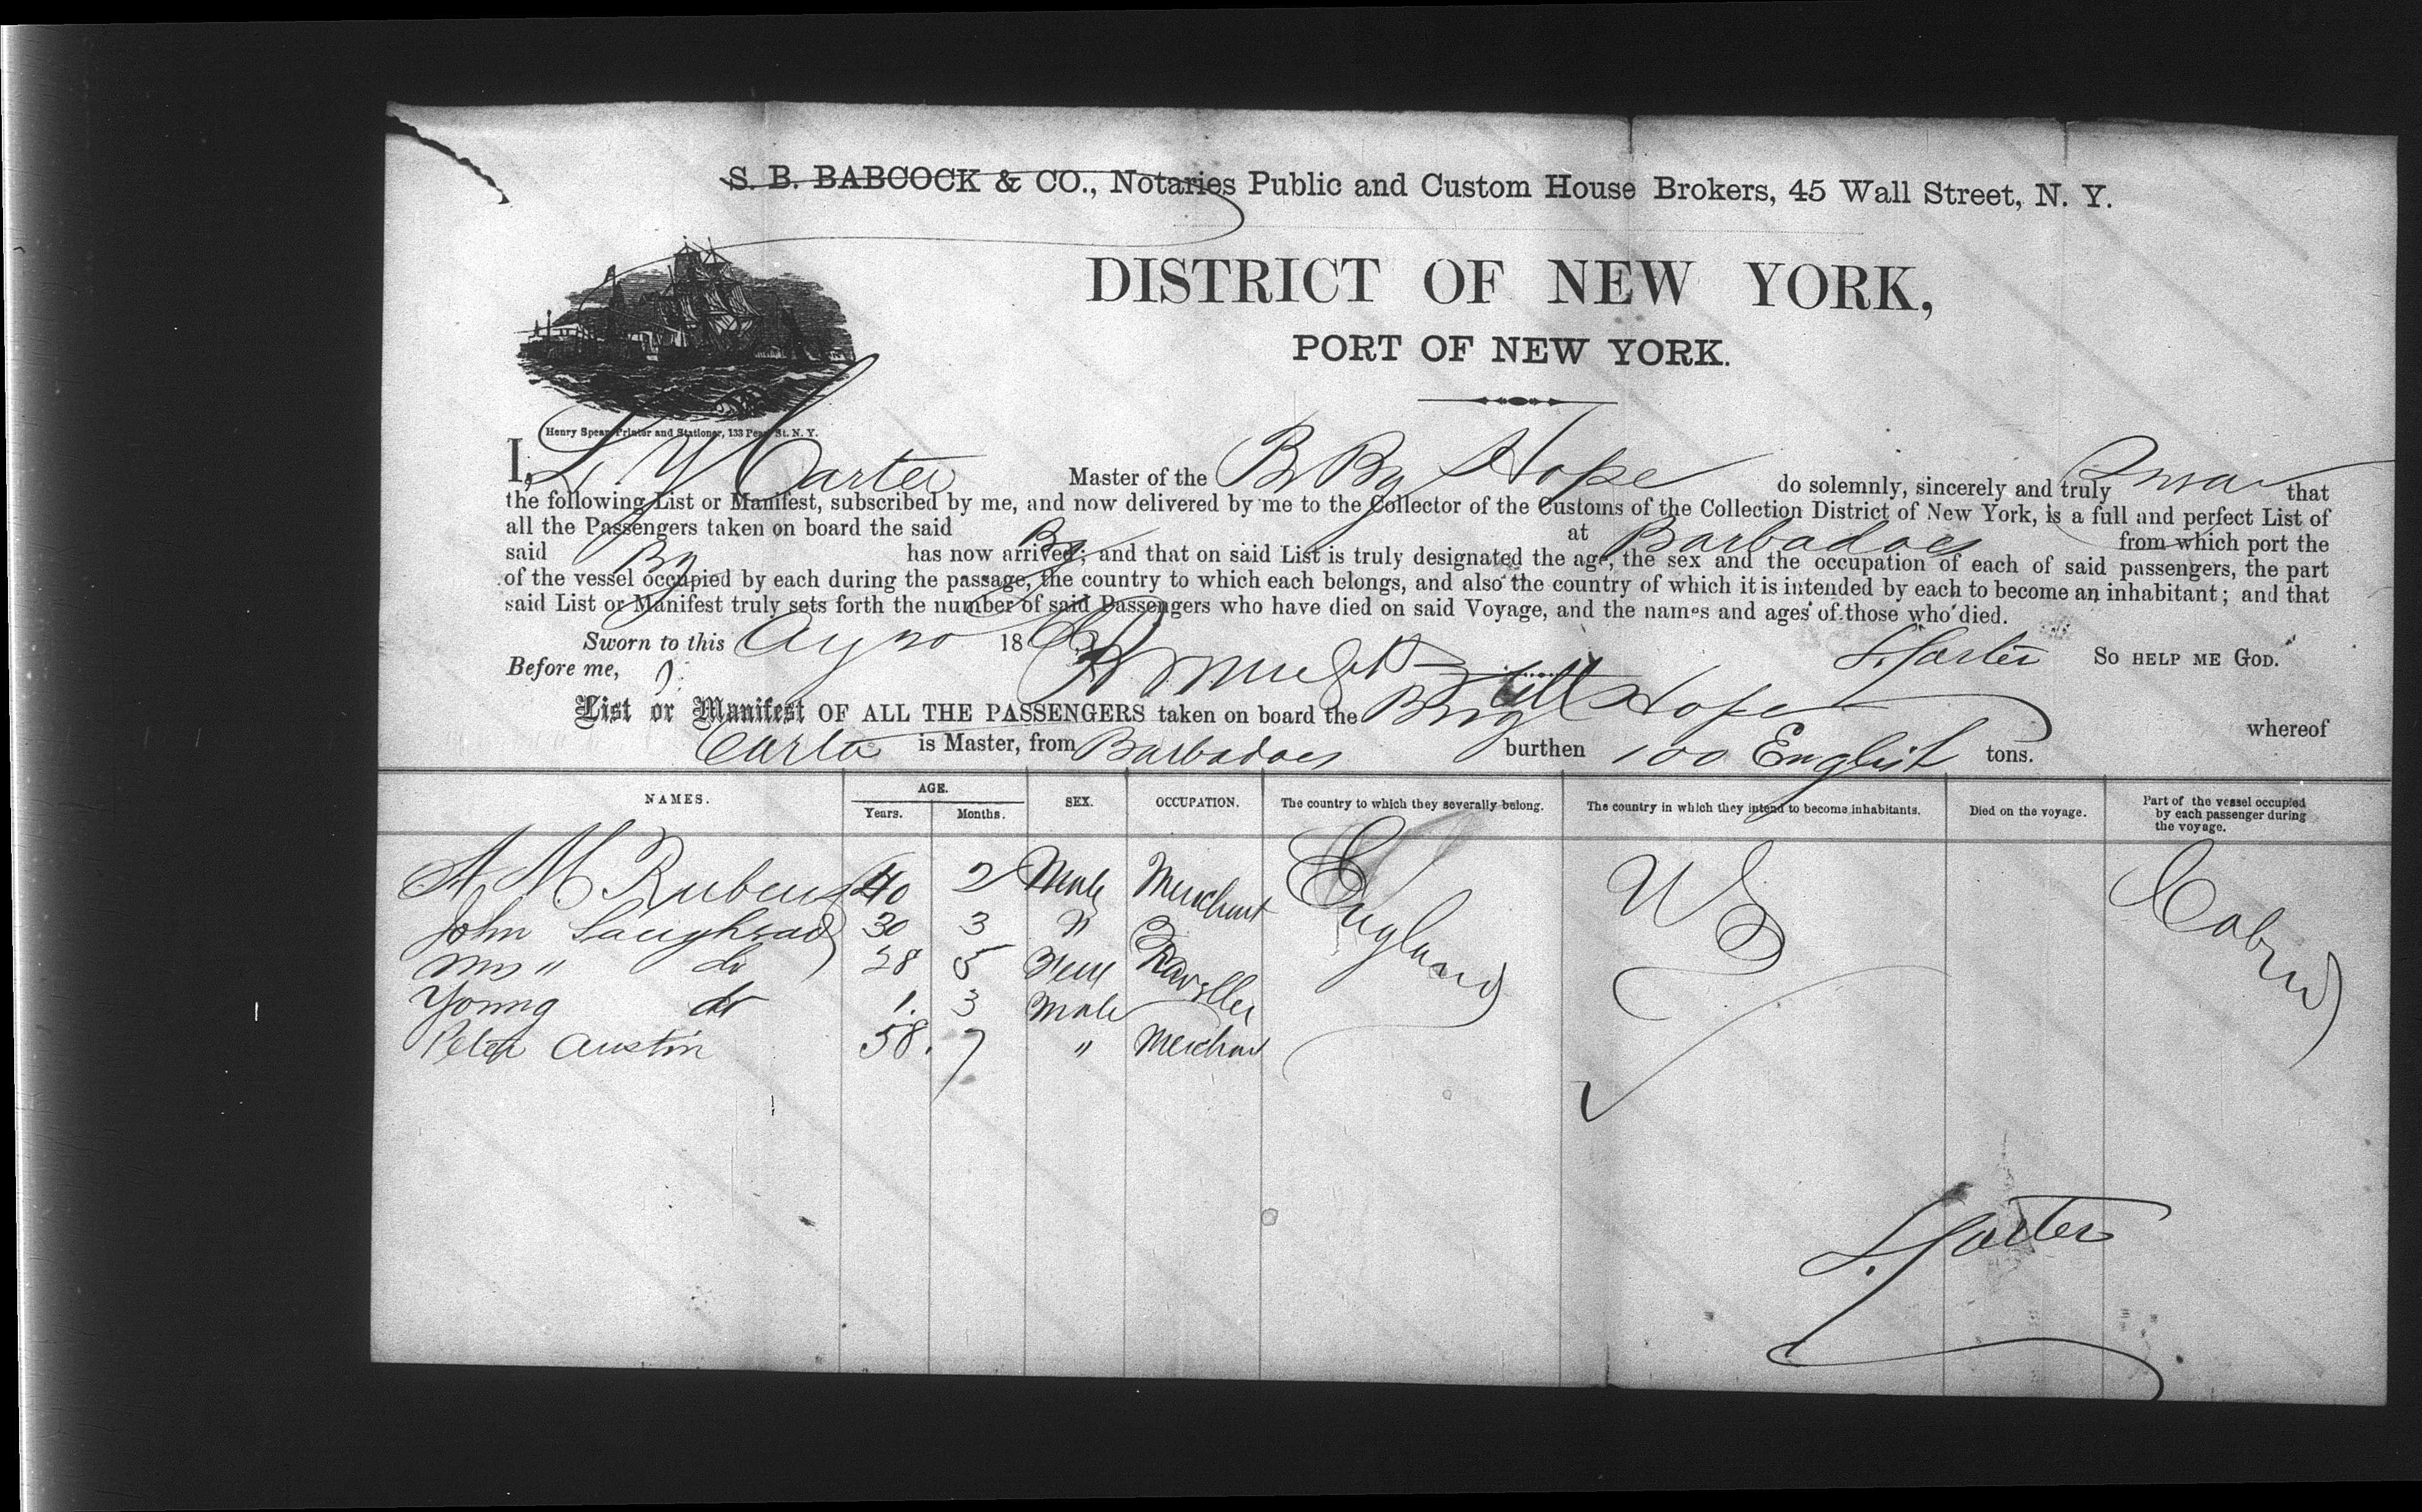 S. B. BABCOCK & CO., Notaries Public and Custom House Brokers, 45 Wall Street, N. Y.
DISTRICT OF NEW YORK,
PORT OF NEW YORK.
Henry Spear, Printer and Stationer, 133 Pearl St. N. Y.
I, Carter Master of the B Bg Hope do solemnly, sincerely and truly swear that
the following List or Manifest, subscribed by me, and now delivered by me to the Collector of the Customs of the Collection District of New York, is a full and perfect List of
all the Passengers taken on board the said Bg at Barbadoes from which port the
said Bg has now arrived; and that on said List is truly designated the age, the sex and the occupation of each of said passengers, the part
of the vessel occupied by each during the passage, the country to which each belongs, and also the country of which it is intended by each to become an inhabitant; and that
said List or Manifest truly sets forth the number of said Passengers who have died on said Voyage, and the names and ages of those who died.
Sworn to this 18 S. Carter SO HELP ME GOD.
Before me,
List or Manifest OF ALL THE PASSENGERS taken on board the Brig Hope whereof
Carter is Master, from Barbadoes burthen 100 English tons.
NAMES. AGE. Years. Months. SEX. OCCUPATION. The country to which they severally belong. The country in which they intend to become inhabitants. Died on the voyage. Part of the vessel occupied by each passenger during the voyage.
A M Rubens 40 2 Male Merchant England US Cabin
John 30 3 "
Mrs " do 28 5 Fem Traveller
Young do 1. 3 Male
Peter Austin 58. 7 " Merchant
S. Carter